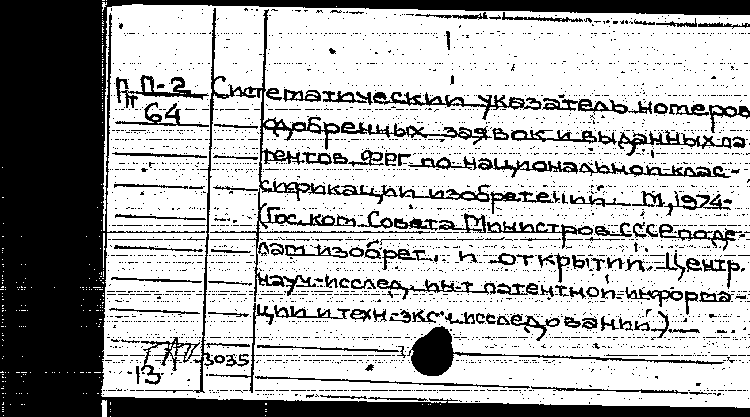 П-2 Систематический указатель номеров
64 одобренных заявок и выданных па-
тентов ФРГ по национальной клас-
сификации изобретений. М., 1974-
(Гос. ком. Совета Министров СССР по де-
лам изобрет. и открытий. Центр.
науч.-исслед. ин-т патентной информа-
ции и техн.-эк. исследований)
3035
13